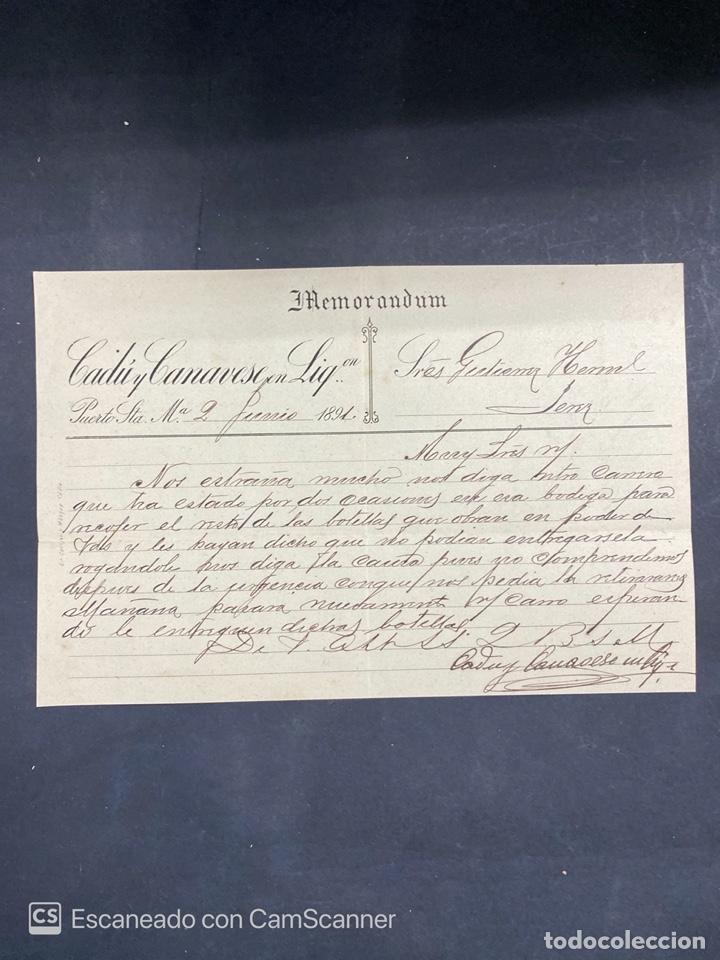 Memorandum
Cadú y Canavese en Liq.on
Sres Gutierrez Herms
Puerto Sta. M.a 2 Junio 1891.
Jerez
Muy Sres ns.
Nos estraña mucho nos diga ntro carrero
que ha estado por dos ocasiones en esa bodega para
recojer el resto de las botellas que obran en poder de
Vds y les hayan dicho que no podian entregarsela
rogandole nos diga la causa pues no comprendemos
despues de la urgencia conque nos pedia la retiraramos
Mañana pasara nuevamente carro esperan-
do le entreguen dichas botellas.
De V. SS. Q B S M
Cadu y Canavese en Liq.on
CS Escaneado con CamScanner
todocoleccion